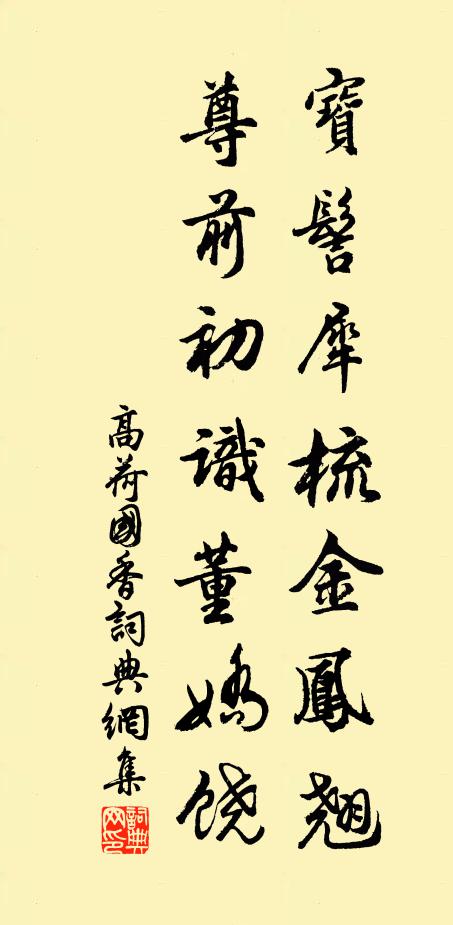 寶髻犀梳金鳳翹
尊前初識董嬌饒
高荷國香詞典網集
詞典
网印